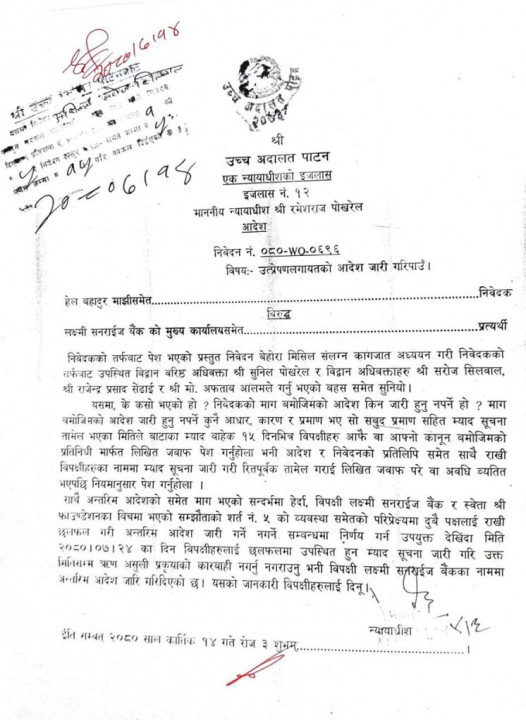 २०८०।६।१४
श्री उच्च
उच्च अदालत पाटन
२०७३
श्री
उच्च अदालत पाटन
एक न्यायाधीशको इजलास
इजलास नं. १२
माननीय न्यायाधीश श्री रमेशराज पोखरेल
आदेश
निवेदन नं. ०८०-WO-०६९६
विषय:- उत्प्रेषणलगायतको आदेश जारी गरिपाउँ।
हेल बहादुर माझीसमेत........................................निवेदक
विरुद्ध
लक्ष्मी सनराईज बैंक को मुख्य कार्यालयसमेत........................................प्रत्यर्थी
निवेदकको तर्फबाट पेश भएको प्रस्तुत निवेदन बेहोरा मिसिल संलग्न कागजात अध्ययन गरी निवेदकको
तर्फबाट उपस्थित विद्वान वरिष्ठ अधिवक्ता श्री सुनिल पोखरेल र विद्वान अधिवक्ताहरु श्री सरोज सिलवाल,
श्री राजेन्द्र प्रसाद सेंढाई र श्री मो. अफताब आलमले गर्नु भएको बहस समेत सुनियो।
यसमा, के कसो भएको हो ? निवेदकको माग बमोजिमको आदेश किन जारी हुनु नपर्ने हो ? माग
बमोजिमको आदेश जारी हुनु नपर्ने कुनै आधार, कारण र प्रमाण भए सो सबुद प्रमाण सहित म्याद सूचना
तामेल भएका मितिले बाटाका म्याद बाहेक १५ दिनभित्र विपक्षीहरु आफै वा आफ्नो कानून बमोजिमको
प्रतिनिधी मार्फत लिखित जवाफ पेश गर्नुहोला भनी आदेश र निवेदनको प्रतिलिपि समेत साथै राखी
विपक्षीहरुका नाममा म्याद सूचना जारी गरी रितपूर्वक तामेल गराई लिखित जवाफ परे वा अवधि व्यतित
भएपछि नियमानुसार पेश गर्नुहोला ।
साथै अन्तरिम आदेशको समेत माग भएको सन्दर्भमा हेर्दा, विपक्षी लक्ष्मी सनराईज बैंक र स्वेता श्री
फाउण्डेशनका विचमा भएको सम्झौताको शर्त नं. ५ को व्यवस्था समेतको परिप्रेक्ष्यमा दुवै पक्षलाई राखी
छलफल गरी अन्तरिम आदेश जारी गर्ने नगर्ने सम्वन्धमा निर्णय गर्न उपयुक्त देखिंदा मिति
२०८०।०७।२४ का दिन विपक्षीहरुलाई छलफलमा उपस्थित हुन म्याद सूचना जारी गरि उक्त
मितिसम्म ऋण असुली प्रकृयाको कारवाही नगर्नु नगराउनु भनी विपक्षी लक्ष्मी सनराईज बैंकका नाममा
अन्तरिम आदेश जारि गरिदिएको छ। यसको जानकारी विपक्षीहरुलाई दिनू।
न्यायाधीश
ईति सम्वत् २०८० साल कार्तिक १४ गते रोज ३ शुभम्........................................।